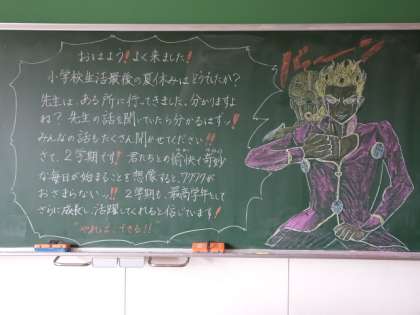 おはよう！よく来ました！
小学校生活最後の夏休みはどうでしたか？
先生は、ある所に行ってきました。分かりますよ
ね？先生の話を聞いていたら分かるはずッ！
みんなの話もたくさん聞かせてください!!
さて、２学期です！君たちとの愉快で奇妙
な毎日が始まることを想像すると、ワクワクが
おさまらないッ!! ２学期も、最高学年として
さらに成長し、活躍してくれると信じています！
"やれば、できる!!"
バァーン